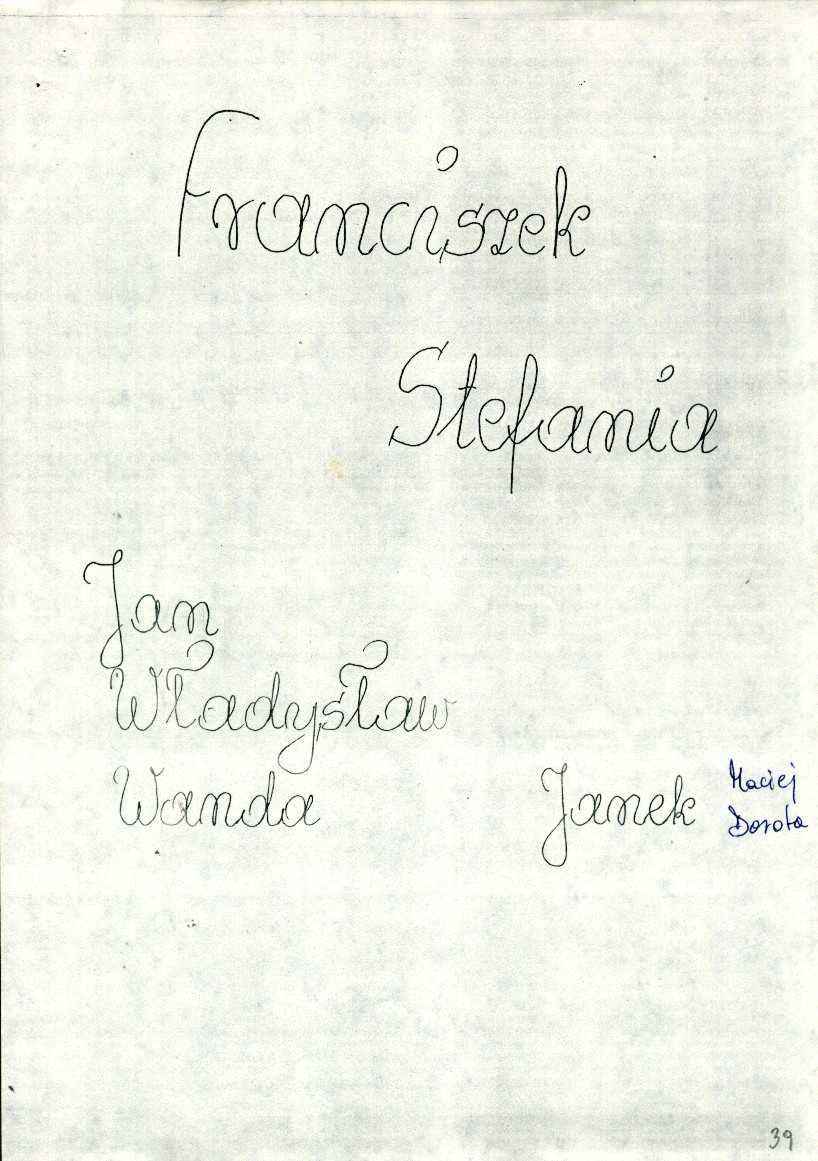 Franciszek
Stefania
Jan
Władysław
Wanda
Janek
Maciej
Dorota
39